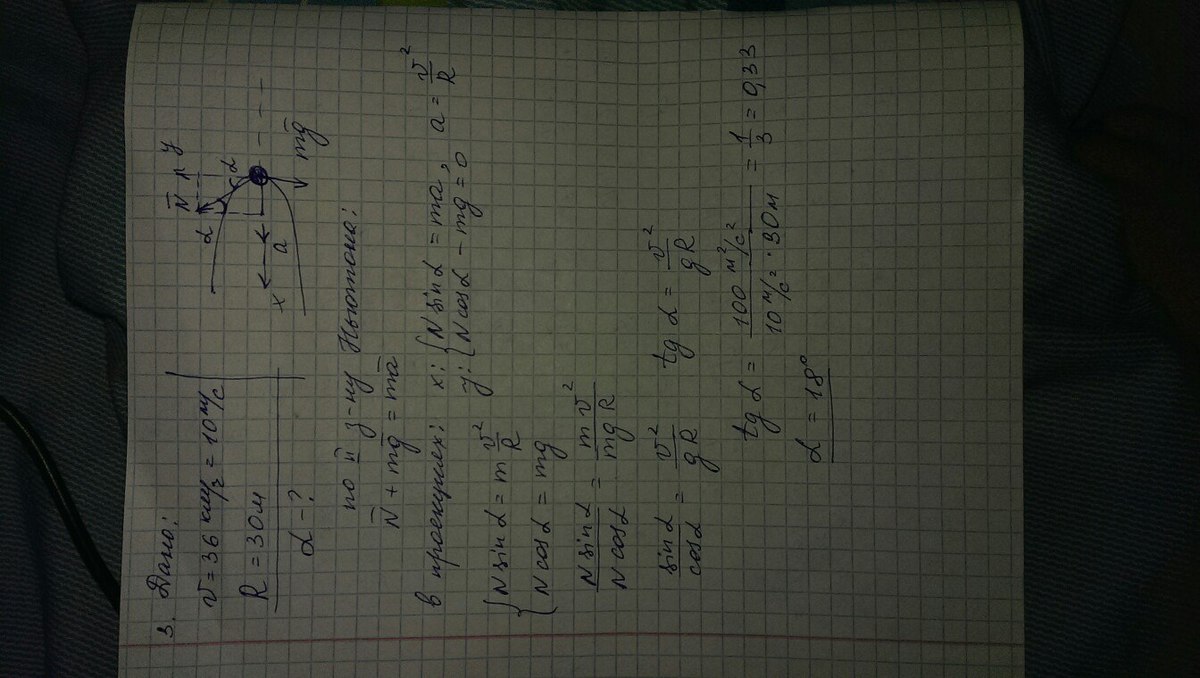 3. Дано:
v = 36 км/г = 10 м/с
R = 30 м
α - ?
N̄ y
α α
x a
m̄g
по II з-ну Ньютона:
N̄ + m̄g = mā
в проекциях: x: { N sin α = ma, a = v²/R
y: { N cos α - mg = 0
{ N sin α = m v²/R
{ N cos α = mg
N sin α / N cos α = m v² / mg R
sin α / cos α = v² / gR tg α = v² / gR
tg α = 100 м²/с² / 10 м/с² · 30 м = 1/3 = 0,33
α = 18°